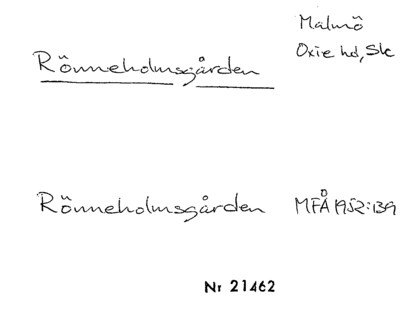 Malmö
Oxie hd, Sk
Rönneholmsgården
Rönneholmsgården MFÅ 1952:139
Nr 21462